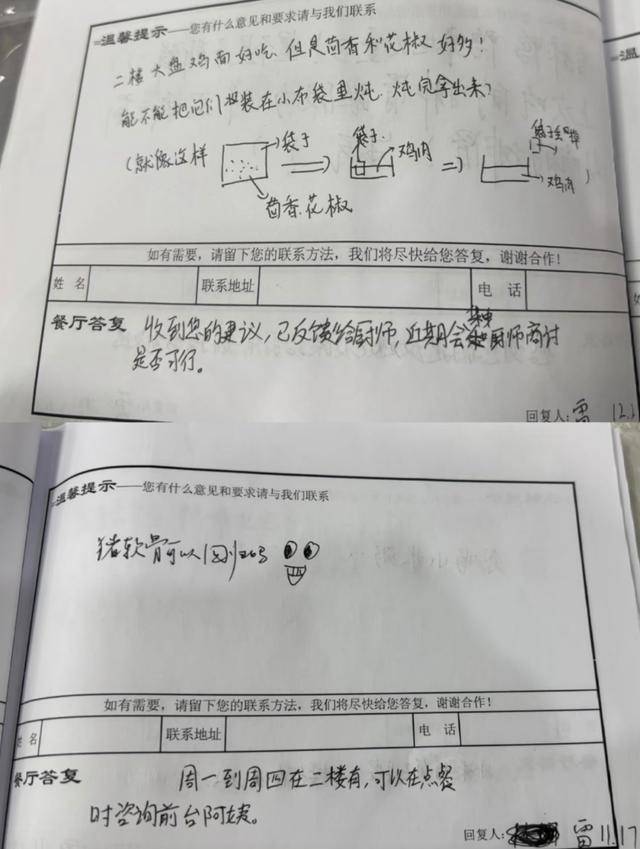 温馨提示——您有什么意见和要求请与我们联系
二楼大盘鸡面好吃,但是茴香和花椒好多!
能不能把它们装在小布袋里炖,炖完拿出来?
(就像这样
袋子
茴香.花椒
袋子.
鸡肉
鸡肉
)
如有需要,请留下您的联系方法,我们将尽快给您答复,谢谢合作!
姓名 联系地址 电话
餐厅答复 收到您的建议,已反馈给厨师,近期会集中和厨师商讨
是否可行。
回复人:雷 12.1
温馨提示——您有什么意见和要求请与我们联系
猪软骨可以回归吗
如有需要,请留下您的联系方法,我们将尽快给您答复,谢谢合作!
名 联系地址 电话
餐厅答复 周一到周四在二楼有,可以在点餐
时咨询前台阿姨。
回复人: 雷 11.17